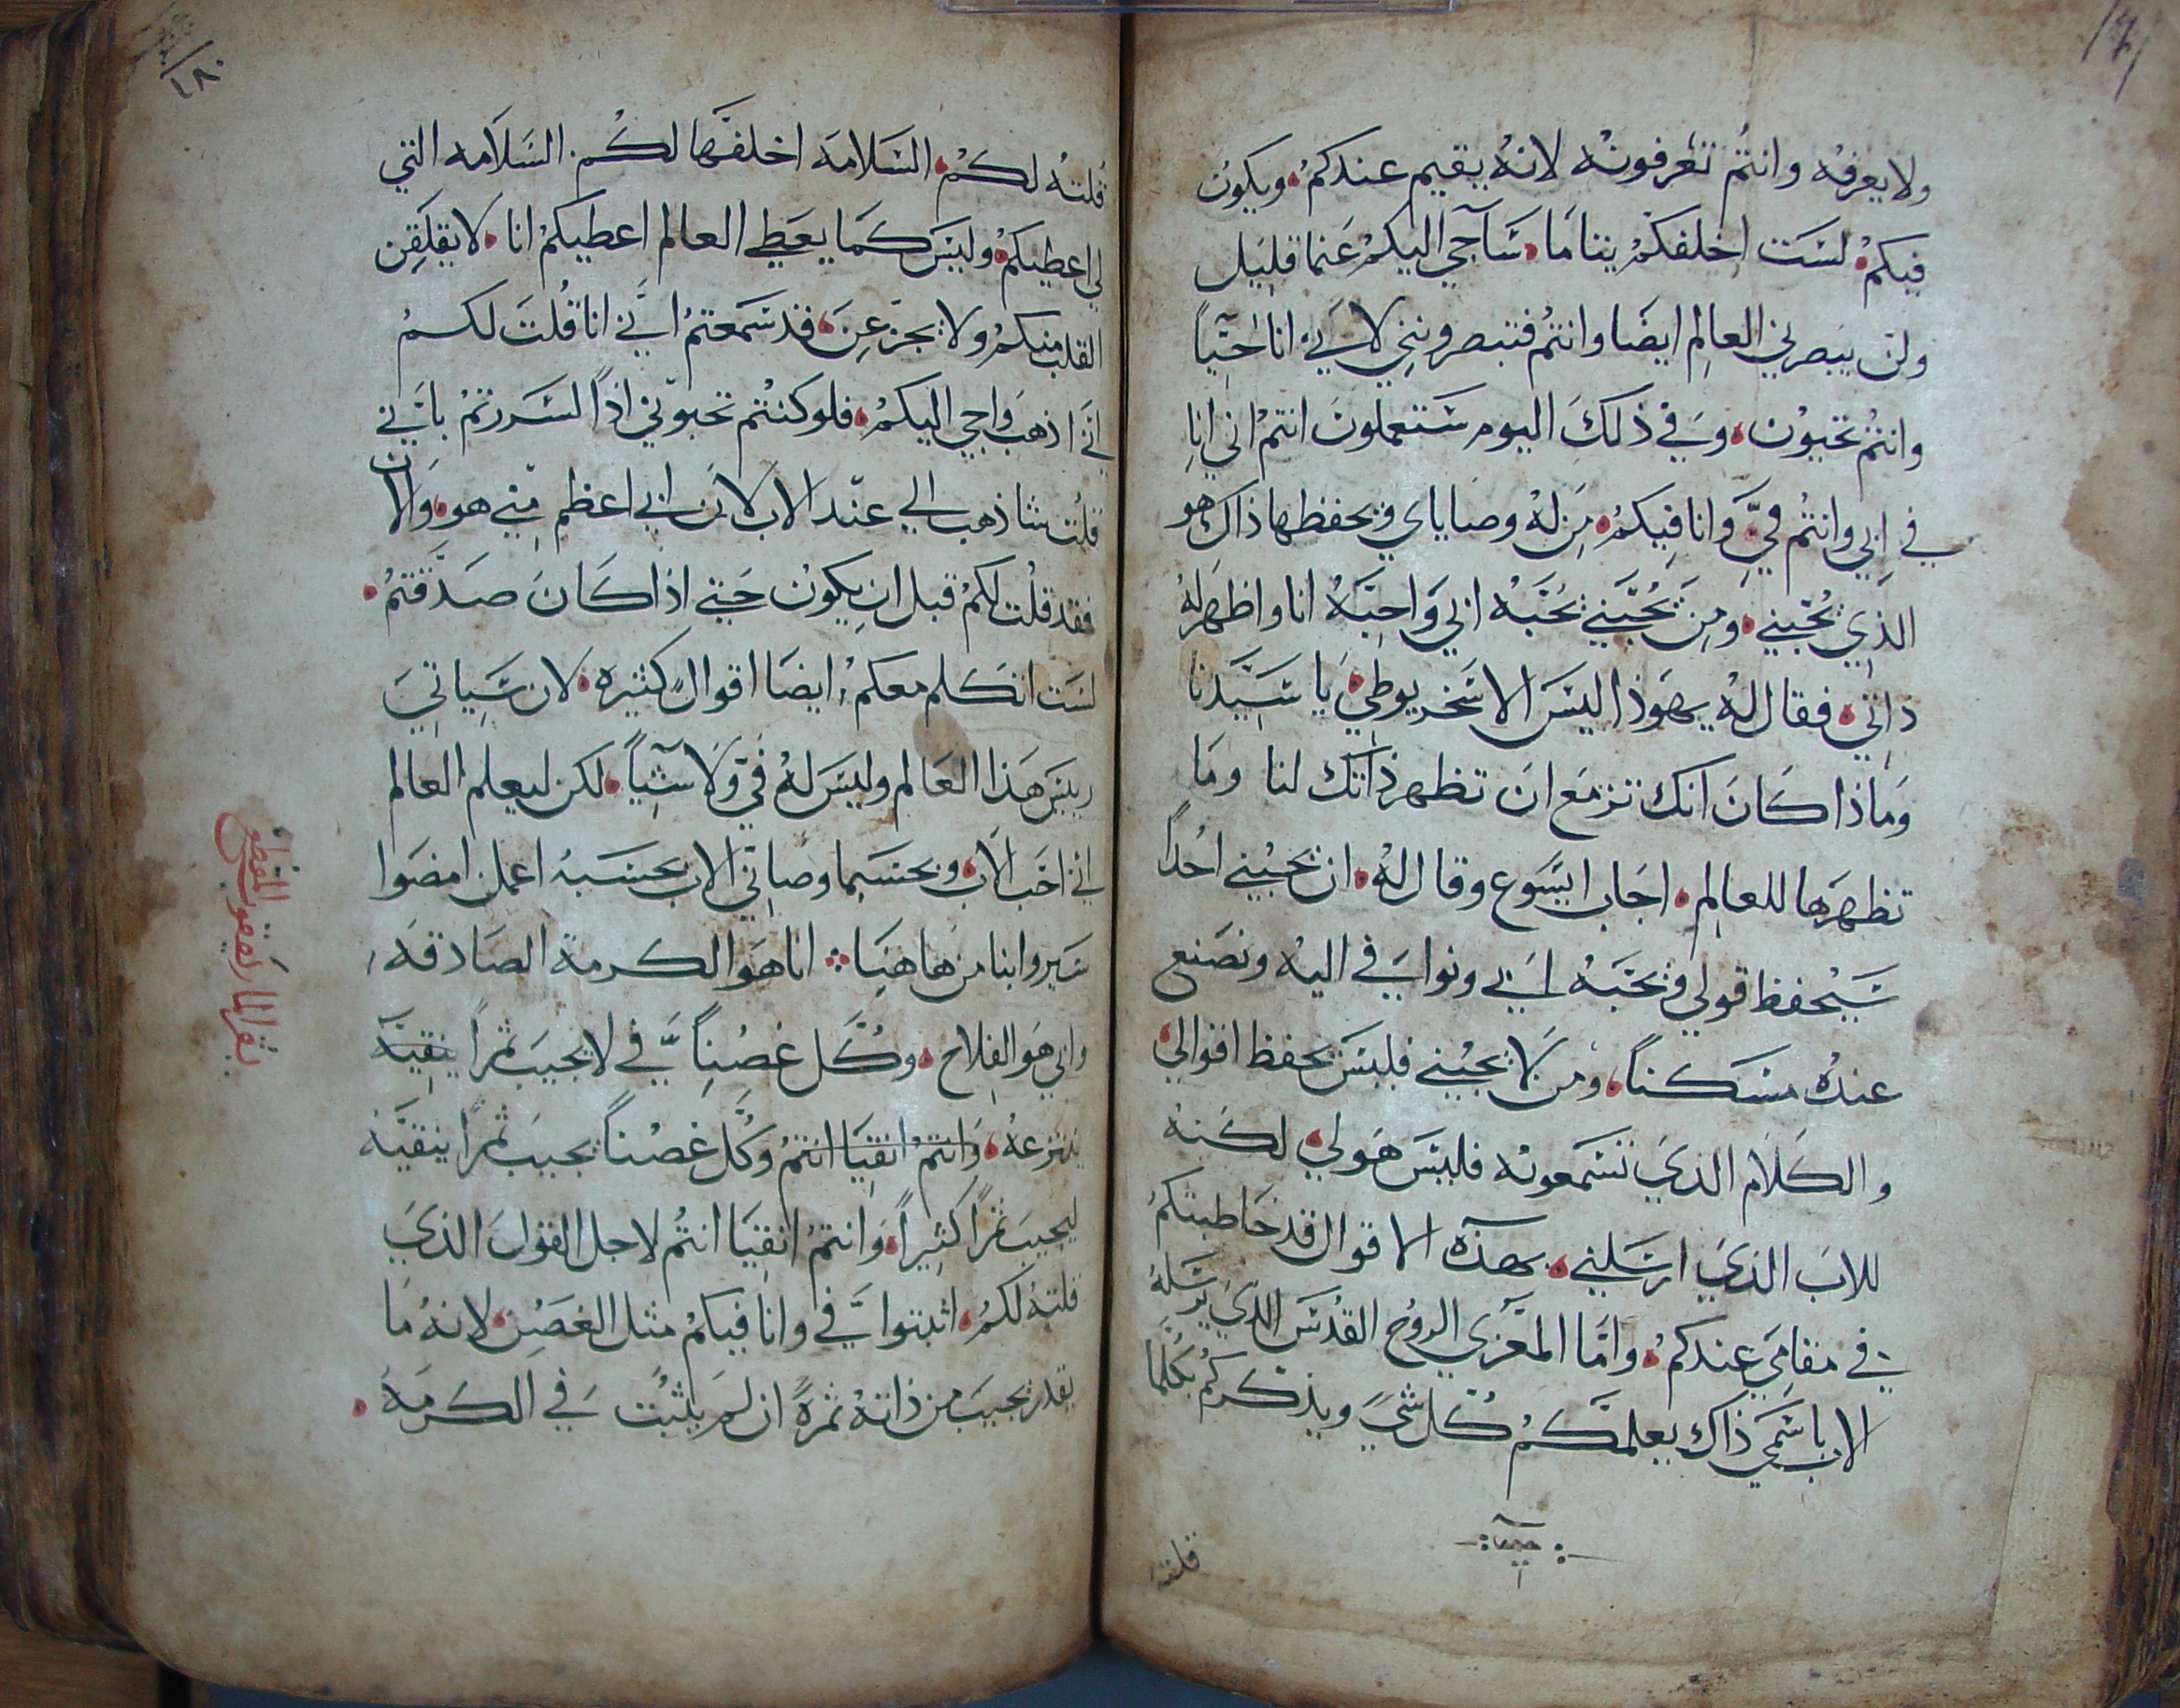 ولا يعرفه وانتم تعرفونه لانه يقيم عندكم ويكون
فيكم لست اخلفكم يتاما ساجي اليكم عنما قليل
ولن يبصرني العالم ايضا وانتم فتبصرونني لاني انا حيا
وانتم تحيون وفي ذلك اليوم ستعملون انتم اني انا
في ابي وانتم في وانا فيكم من له وصاياي ويحفظها ذاك هو
الذي يحبني ومن يحبني يحبه ابي واحبه انا واظهر له
ذاتي فقال له يهوذا ليس الاسخريوطي يا سيدنا
وماذا كان انك تزمع ان تظهر ذاتك لنا وما
تظهرها للعالم اجاب ايسوع وقال له ان يحبني احدا
سيحفظ قولي ويحبه ابي ونوافي اليه ونصنع
عنده مسكنا ومن لا يحبني فليس يحفظ اقوالي
والكلام الذي تسمعونه فليس هو لي لكنه
للاب الذي ارسلني بهذه الاقوال قد خاطبتكم
في مقامي عندكم واما المعزي الروح القدس الذي يرسله
الاب باسمي ذاك يعلمكم كل شي ويذكركم بكلما
قلته
١٨٠
قلته لكم السلامه اخلفها لكم السلامه التي
لي اعطيكم وليس كما يعطي العالم اعطيكم انا لا يقلقن
القلب منكم ولا يجزعن قد سمعتم اني انا قلت لكم
اني اذهب واجي اليكم فلو كنتم تحبوني اذا لسررتم باني
قلت ساذهب الي عند الاب لان ابي اعظم مني هو والان
فقد قلت لكم قبل ان يكون حتي اذا كان صدقتم
لست اتكلم معكم ايضا اقوال كثيره لان سياتي
رييس هذا العالم وليس له في ولا شيا لكن ليعلم العالم
اني احب الاب وبحسبما وصاني الاب بحسبه اعمل امضوا
سيروا بنا من هاهنا انا هو الكرمة الصادقه
وابي هو الفلاح وكل غصنا في لا يجيب ثمرا ينقيه
ينتزعه وانتم انقيا انتم وكل غصنا يجيب ثمرا ينقيه
ليجيب ثمرا كثيرا وانتم انقيا انتم لاجل القول الذي
قلته لكم اثبتوا في وانا فيكم مثل الغصن لانه ما
يقدر يجيب من ذاته ثمرة ان لم يثبت في الكرمه